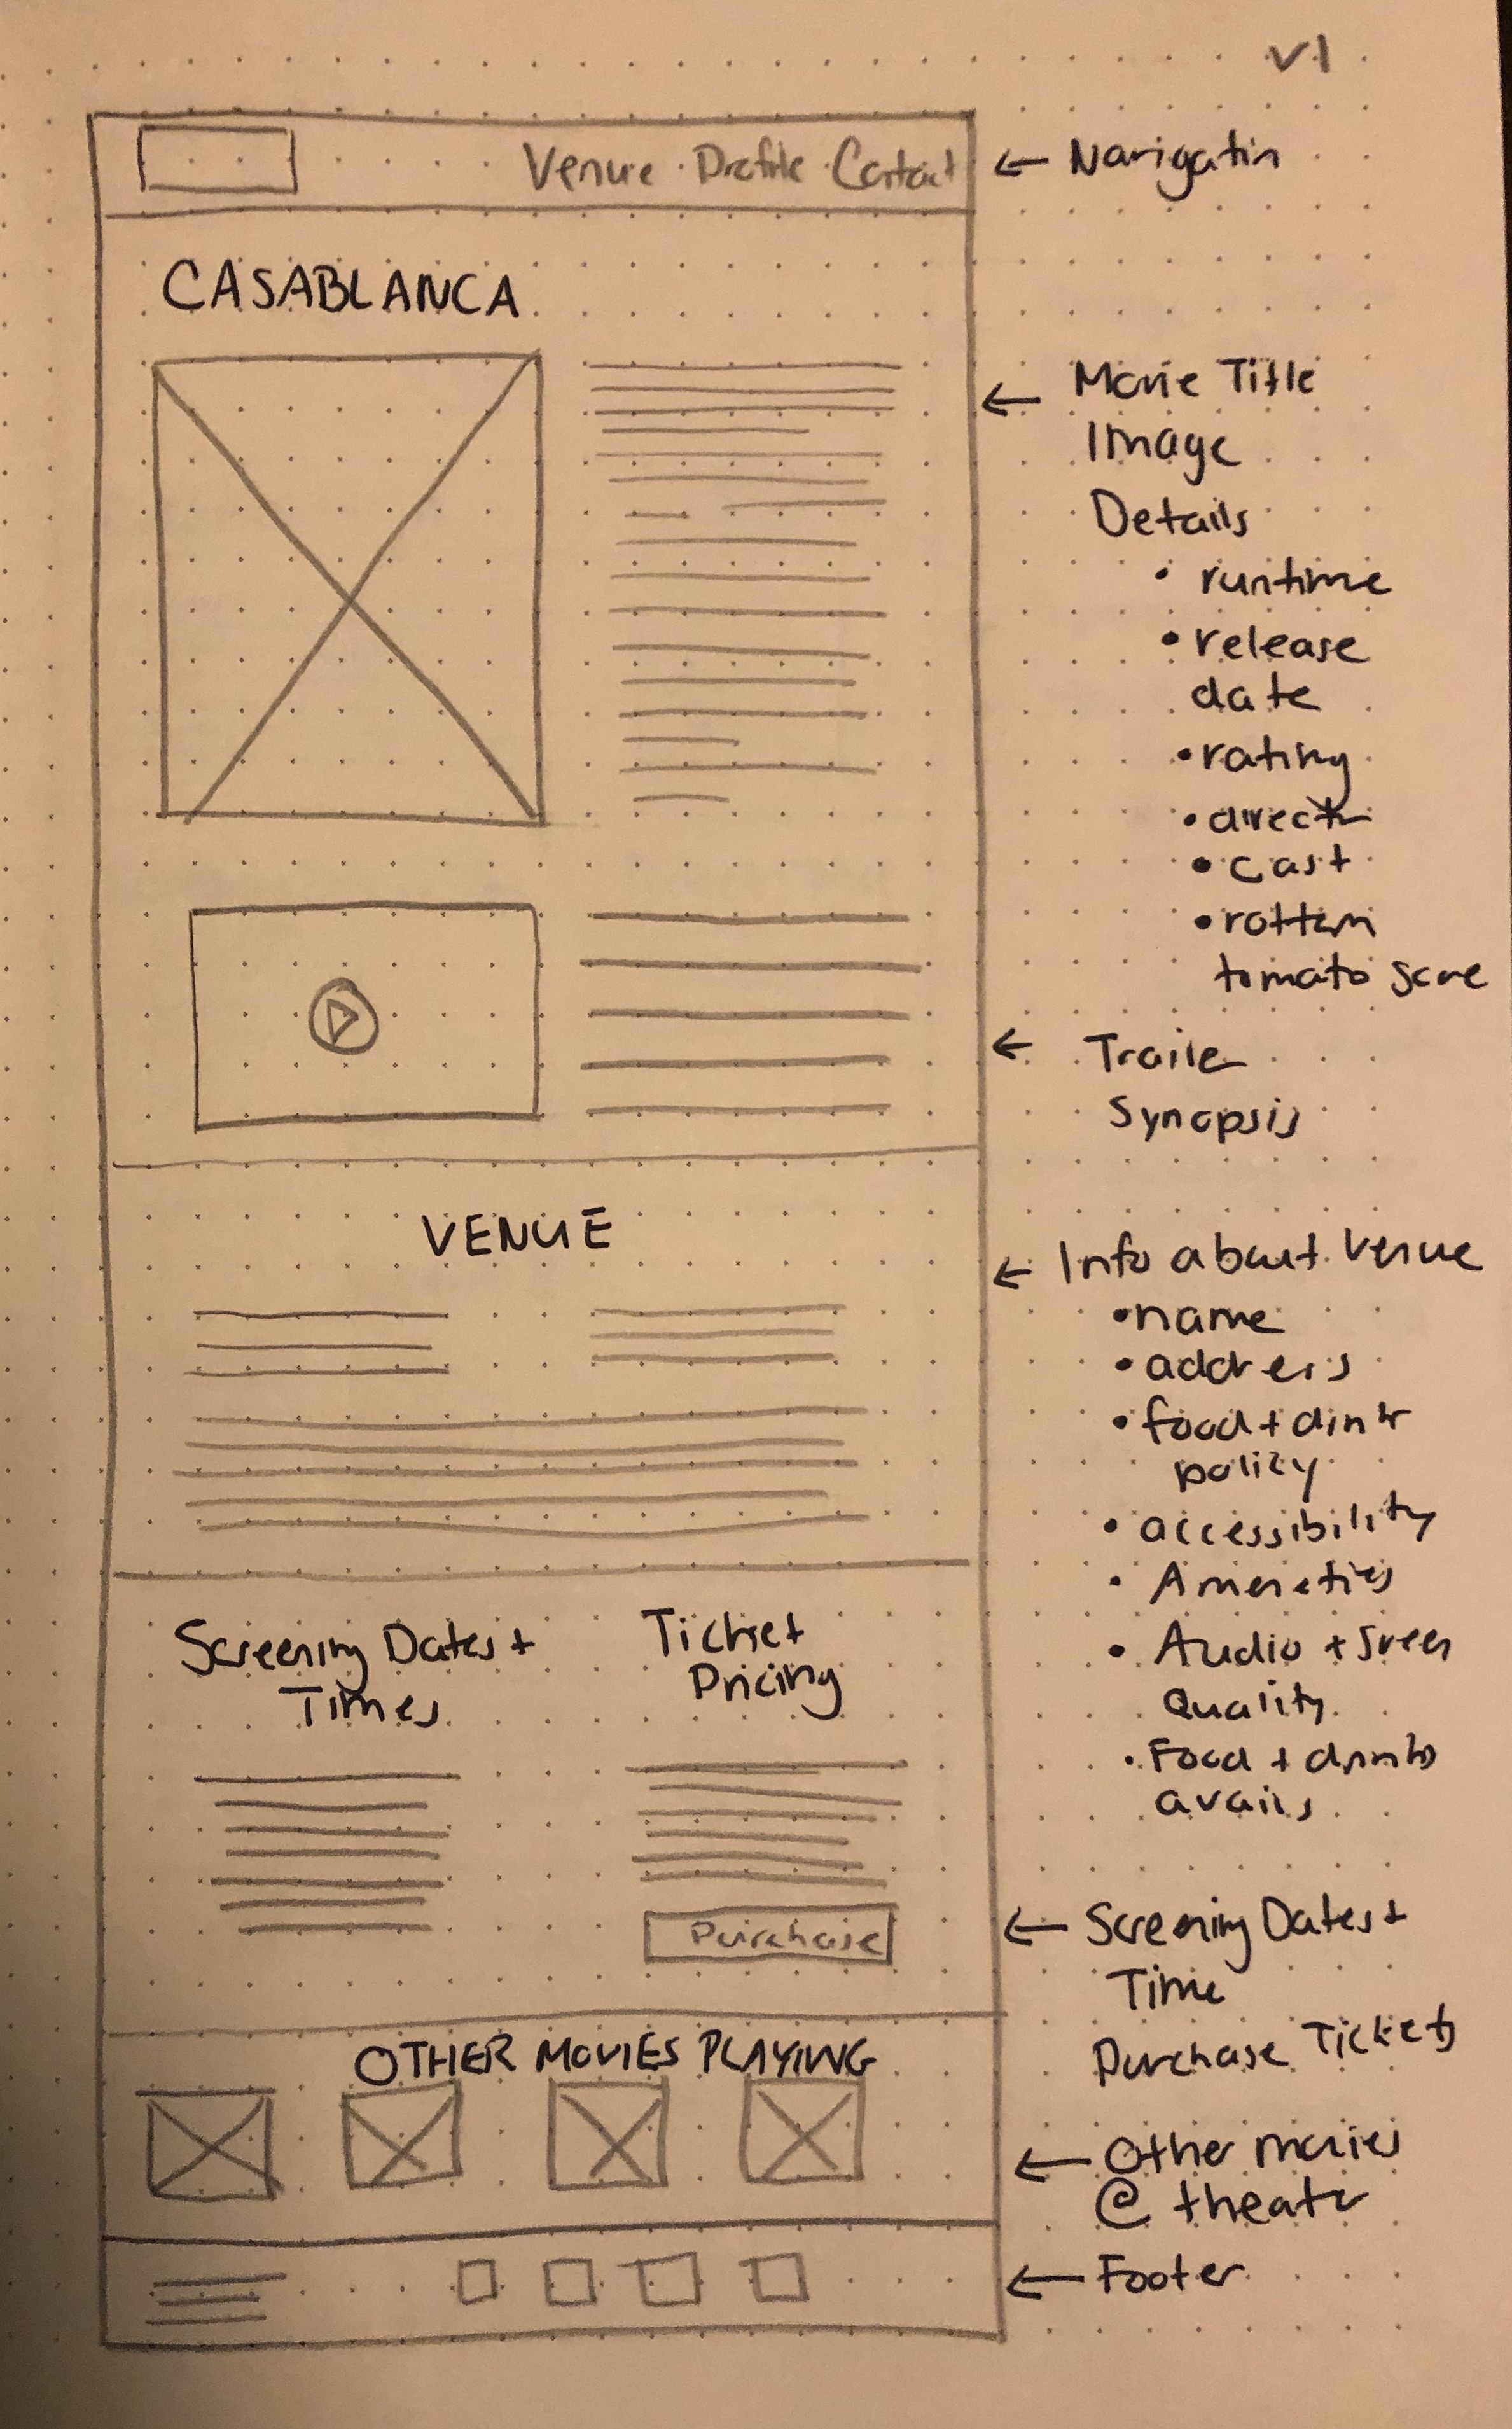 v1
Venue Profile Contact
← Navigatin
CASABLANCA
← Movie Title
Image
Details
• runtime
• release
date
• rating
• directr
• cast
• rotten
tomato score
← Traile
Synopsis
VENUE
← Info about Venue
• name
• address
• food + dink
policy
• accessibility
• Ameneties
• Audio + Sreen
Quality
• Food + drinks
avails
Screening Dates +
Times
Ticket
Pricing
Purchase
← Screening Dates +
Time
Purchase Tickets
OTHER MOVIES PLAYING
← Other movies
@ theatr
← Footer